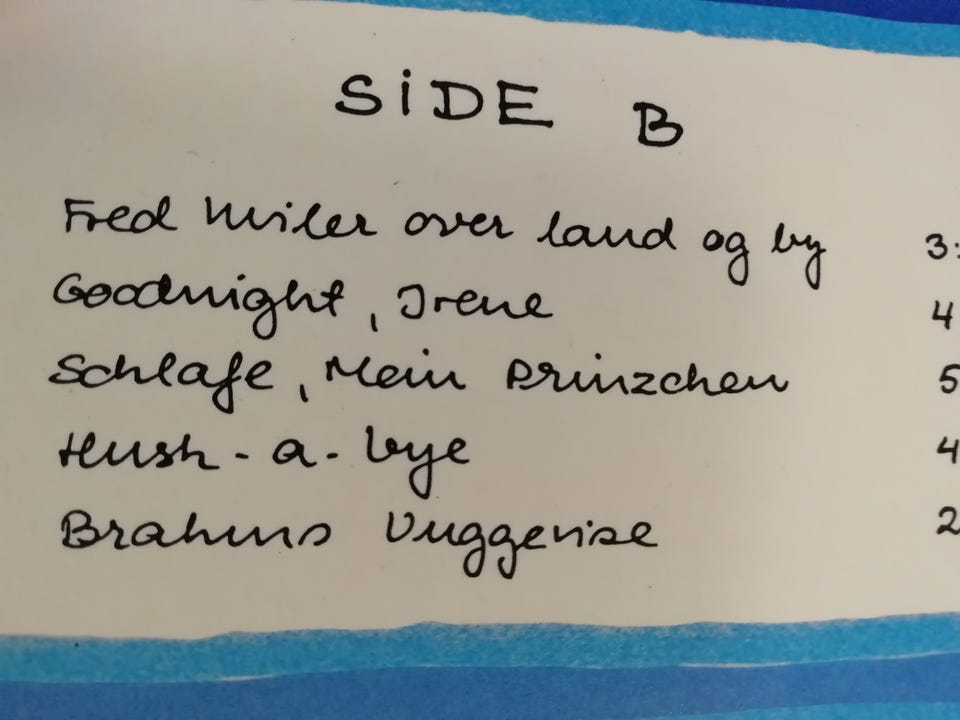 SiDE B
Fred hviler over land og by 3:
Goodnight, Irene 4
Schlafe, Mein Prinzchen 5
Hush-a-bye 4
Brahms Vuggevise 2